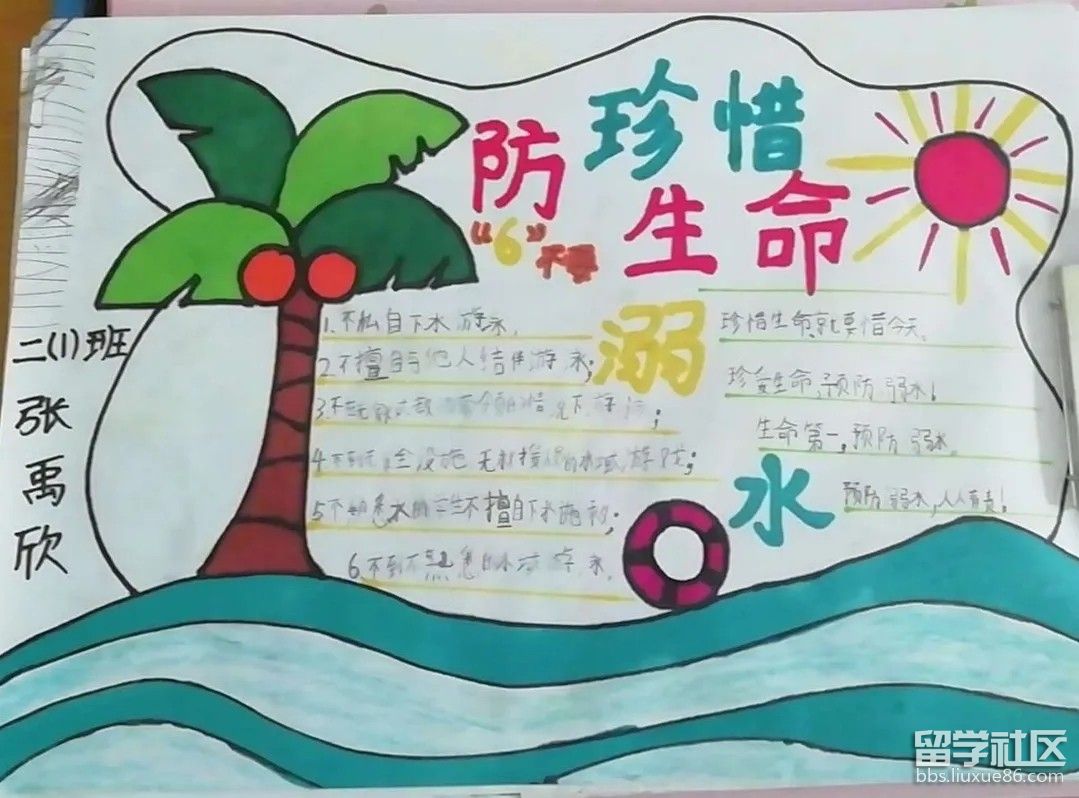 珍惜
生命
防
溺
水
"6"不要
二(1)班
张禹欣
1.不私自下水游泳,
2.不擅自与他人结伴游泳;
3.不在无家
4.不到无 全设施 无救援 的水域游戏;
5.不熟悉水的学生不擅自下水施救;
6.不到不熟悉的水域游泳.
珍惜生命就要惜今天.
珍爱生命,预防弱水!
生命第一,预防弱水.
预防弱水,人人有责!
留学社区
bbs.liuxue86.com